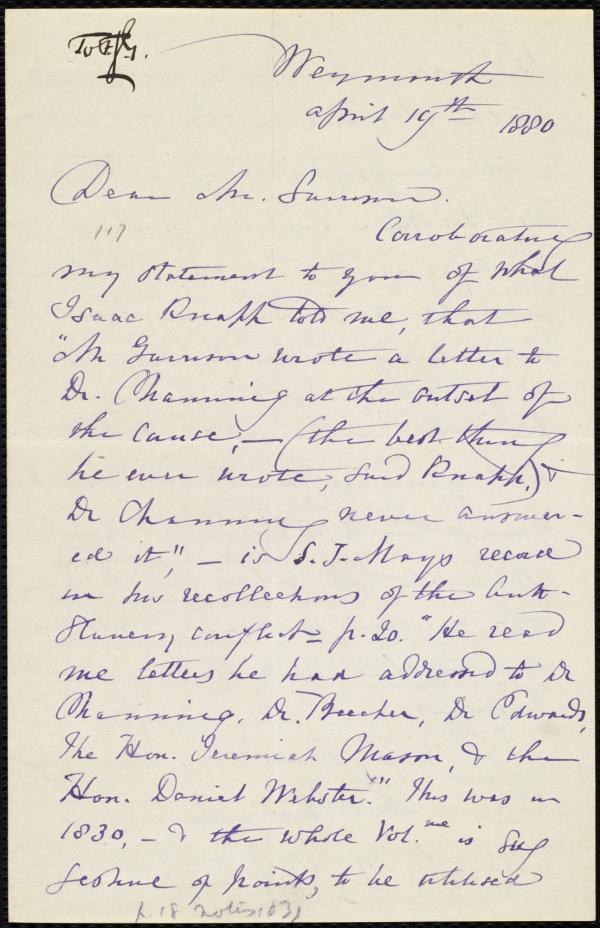 To F. J. G.
Weymouth
April 19th 1880
Dear Mr. Garrison.
117
Corroborating
my statement to you of what
Isaac Knapp told me, that
"Mr Garrison wrote a letter to
Dr. Channing at the outset of
the cause, — (the best thing
he ever wrote, said Knapp,) &
Dr Channing never answer-
ed it", — is S. J. Mays record
in his recollections of the Anti-
Slavery conflict – p. 20. "He read
me letters he had addressed to Dr
Channing, Dr. Beecher, Dr Edwards,
The Hon. Jeremiah Mason, & the
Hon. Daniel Webster." This was in
1830, – & the whole Vol.me is sug
gestive of points, to be utilised
p. 18 notes 1831